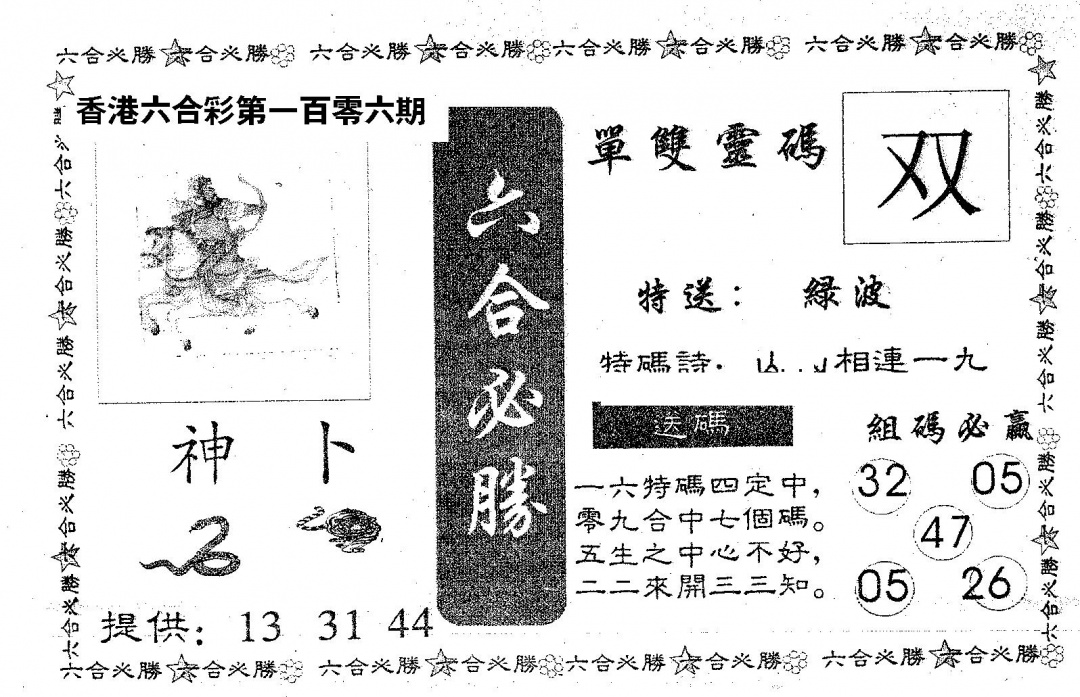 六合必勝 六合必勝 六合必勝 六合必勝 六合必勝 六合必勝 六合必勝 六合必勝
香港六合彩第一百零六期
六合必勝
單雙靈碼
双
特送: 緑波
特碼詩. 相連一九
送碼
一六特碼四定中,
零九合中七個碼。
五生之中心不好,
二二來開三三知。
組碼必贏
32 05
47
05 26
神 卜
提供: 13 31 44
六合必勝 六合必勝 六合必勝 六合必勝 六合必勝 六合必勝 六合必勝 六合必勝